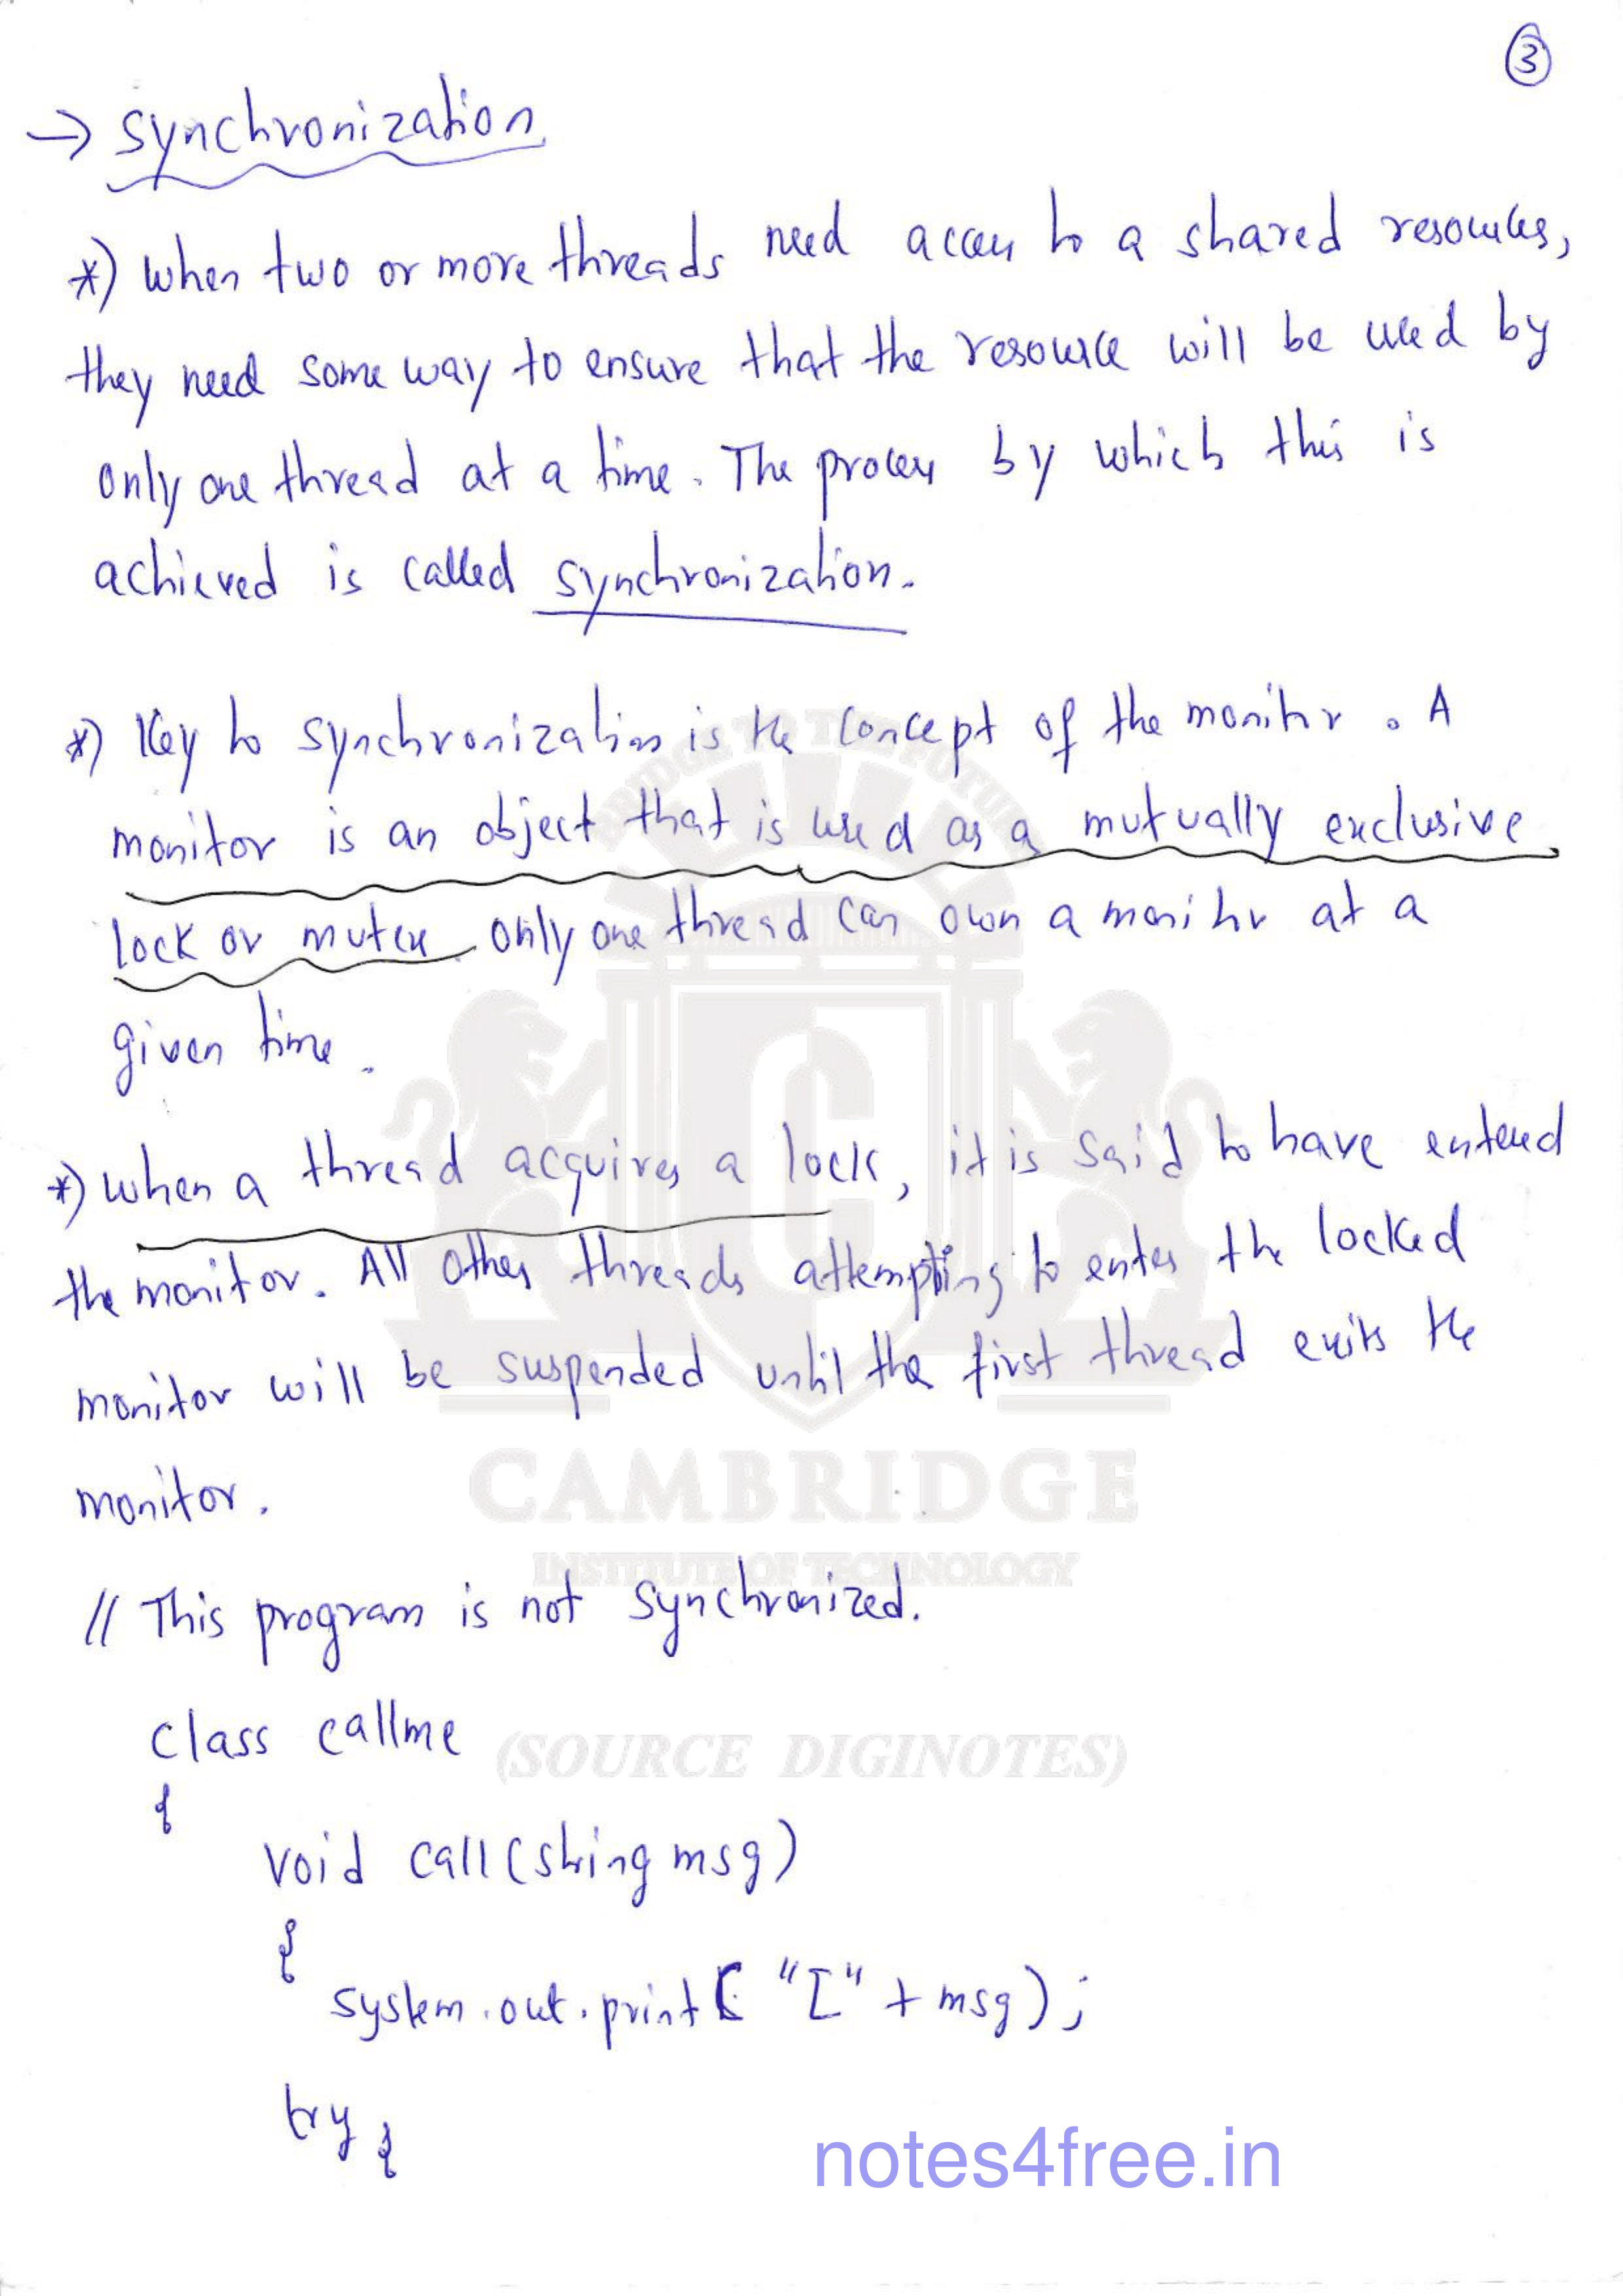 3
→ synchronization
*) when two or more threads need access to a shared resources,
they need some way to ensure that the resource will be used by
only one thread at a time. The process by which this is
achieved is called synchronization.
*) Key to synchronization is the concept of the monitor. A
monitor is an object that is used as a mutually exclusive
lock or mutex. only one thread can own a monitor at a
given time.
*) when a thread acquires a lock, it is said to have entered
the monitor. All other threads attempting to enter the locked
monitor will be suspended until the first thread exits the
monitor.
// This program is not synchronized.
class callme
{
void call(string msg)
{
system.out.print( "[" + msg);
try {
BRIDGE TO THE FUTURE
CAMBRIDGE
INSTITUTE OF TECHNOLOGY
(SOURCE DIGINOTES)
notes4free.in